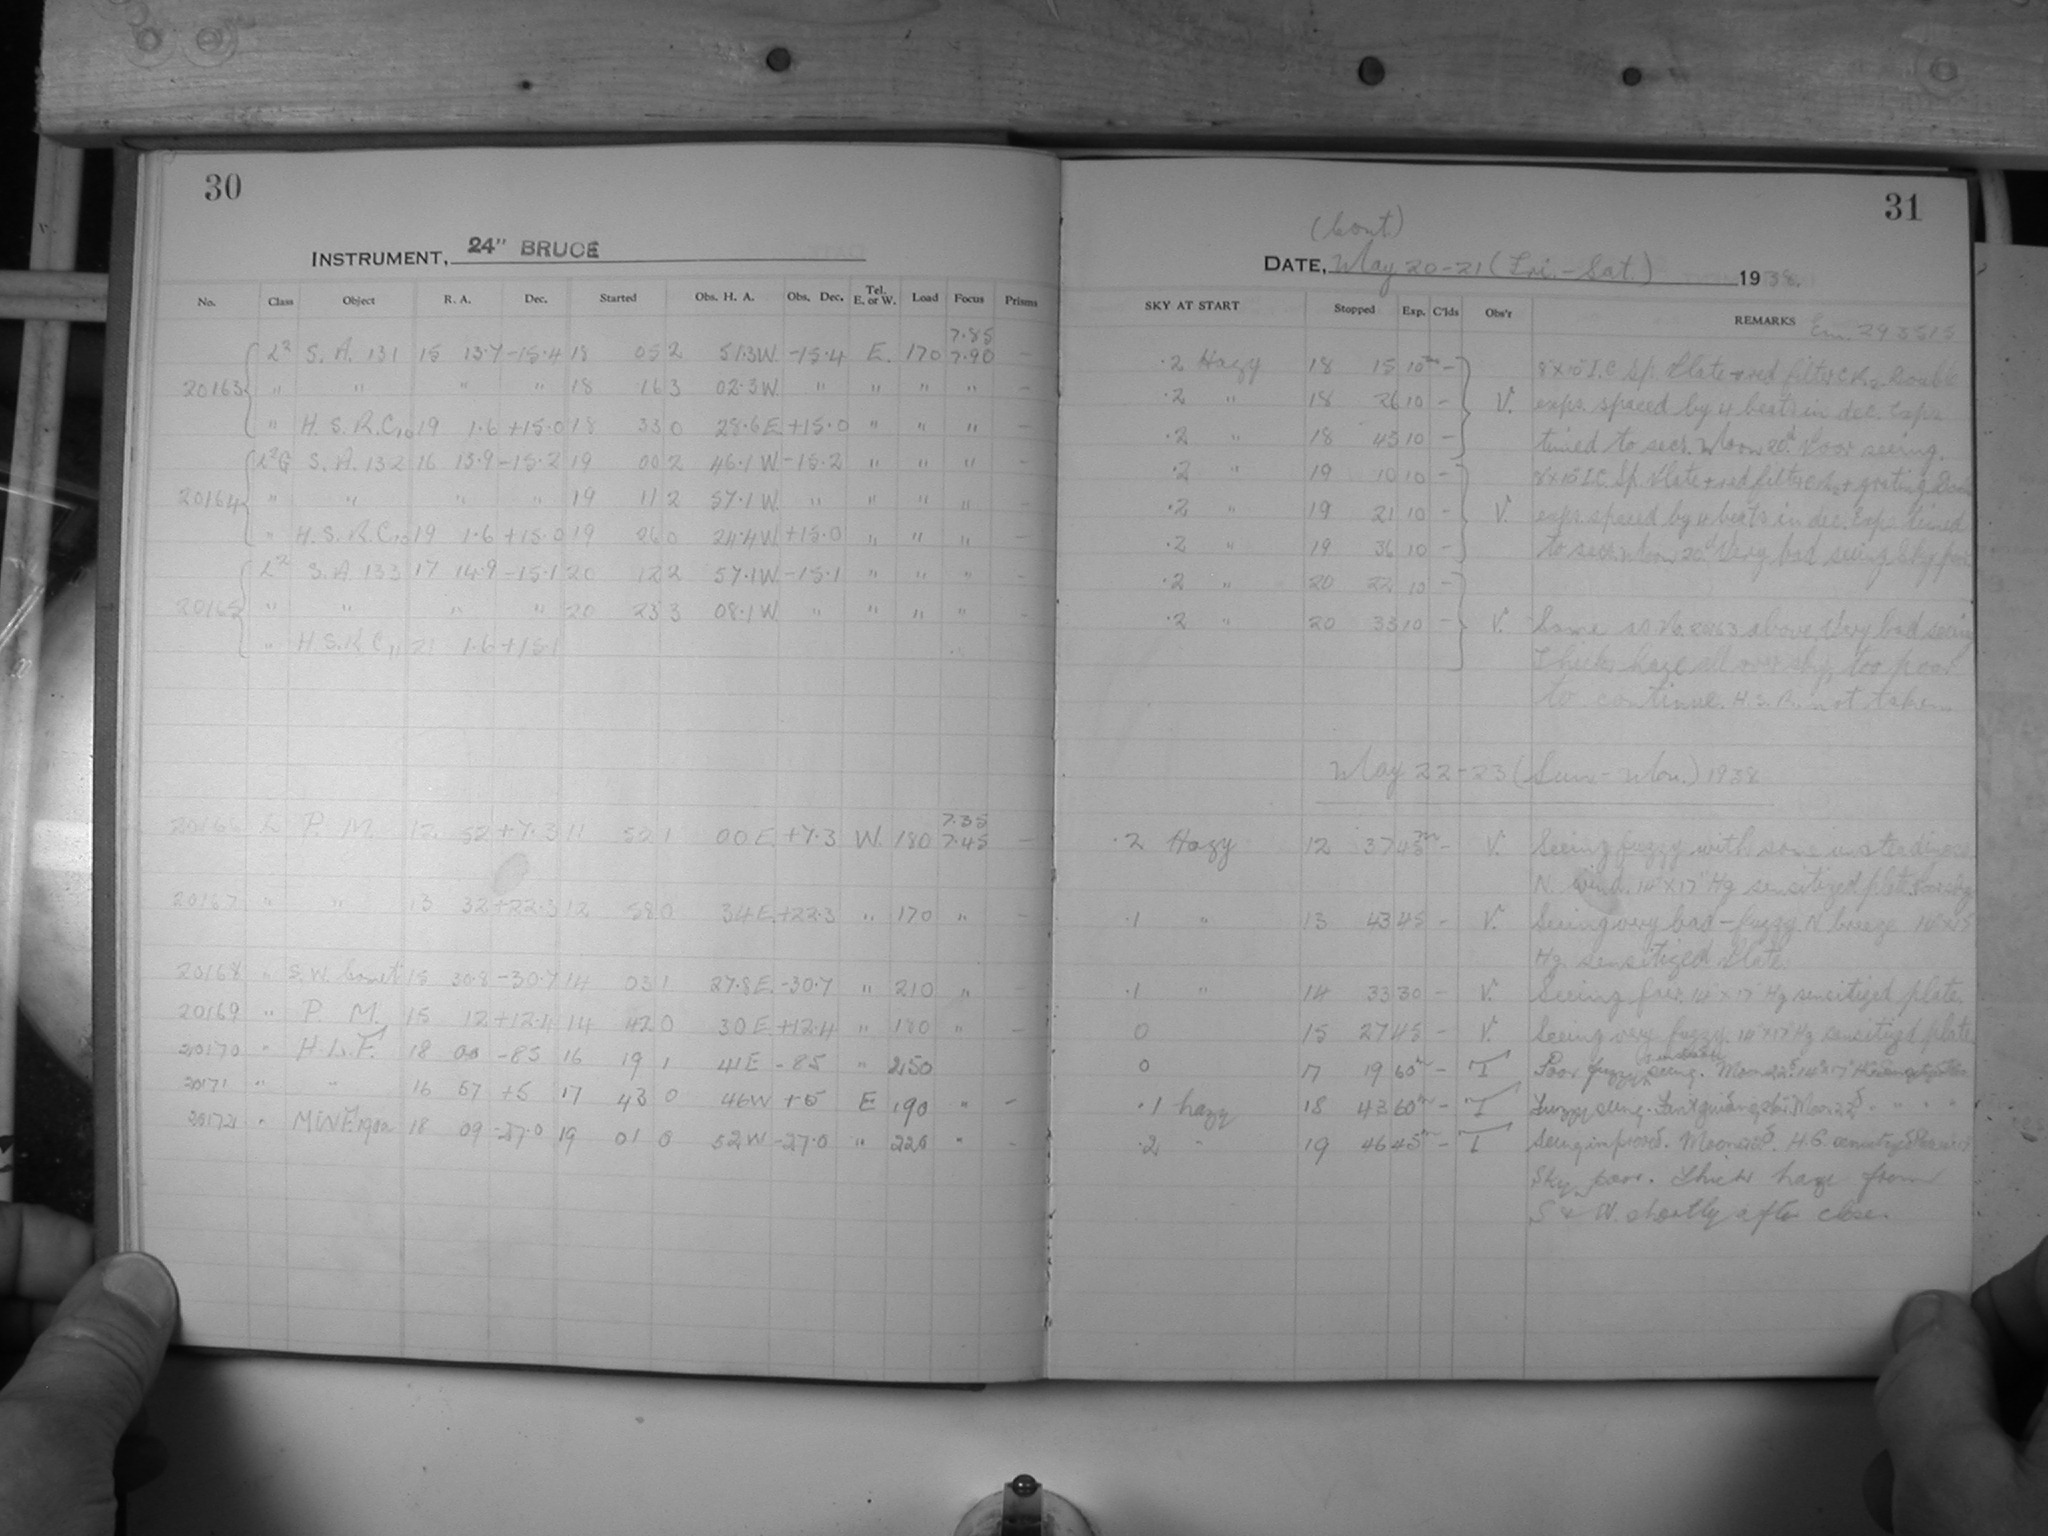 30
INSTRUMENT, 24" BRUCE
No. Class Object R. A. Dec. Started Obs. H. A. Obs. Dec. Tel. E. or W. Load Focus Prisms
7.85
L2 S. A. 131 15 13.7 -15.4 18 05 2 51.3 W. -15.4 E. 170 7.90 -
20163 " " " " 18 16 3 02.3 W. " " " " -
" H. S. R. C10 19 1.6 +15.0 18 33 0 28.6 E +15.0 " " " -
L2G S. A. 132 16 13.9 -15.2 19 00 2 46.1 W. -15.2 " " " -
20164 " " " " 19 11 2 57.1 W. " " " " -
" H. S. R. C10 19 1.6 +15.0 19 26 0 24.4 W. +15.0 " " " -
L2 S. A. 133 17 14.9 -15.1 20 12 2 57.1 W. -15.1 " " " -
20165 " " " " 20 23 3 08.1 W. " " " " -
" H. S. R. C11 21 1.6 +15.1
7.35
20166 L P. M. 12 52 +7.3 11 52 1 00 E. +7.3 W. 180 7.45 -
20167 " " 13 32 +22.3 12 58 0 34 E. +22.3 " 170 " -
20168 " S. W. Comet 15 30.8 -30.7 14 03 1 27.8 E. -30.7 " 210 "
20169 " P. M. 15 12 +12.4 14 42 0 30 E. +12.4 " 180 " -
20170 " H. L. F. 18 00 -85 16 19 1 41 E -85 " 250
20171 " " 16 57 +5 17 43 0 46 W +5 E 190 " -
20172 " MWF 190a 18 09 -27.0 19 01 0 52 W -27.0 " 220 " -
31
(Cont)
DATE, May 20-21 (Fri. - Sat.) 1938.
SKY AT START Stopped Exp. C'lds Obs'r REMARKS Em. 293515
.2 Hazy 18 15 10m - 8"x10" I.C Sp. Plate + red filter Double
.2 " 18 26 10 - V. exps. spaced by 4 beats in dec. Exps
.2 " 18 43 10 - timed to secs. Moon 20d. Poor seeing.
.2 " 19 10 10 - 8"x10" I.C Sp. Plate + red filter + grating
.2 " 19 21 10 - V. exps. spaced by 4 beats in dec. Exps. timed
.2 " 19 36 10 - to secs. Moon 20d. Very bad seeing. Sky poor
.2 " 20 22 10 -
.2 " 20 33 10 - V. Same as No. 20163 above. Very bad seeing
Thick haze all over sky, too poor
to continue. H. S. R. not taken.
May 22-23 (Sun - Mon.) 1938
.2 Hazy 12 37 45m - V. Seeing fuzzy with some unsteadiness
N. wind. 14"x17" Hg sensitized plate. Poor sky
.1 " 13 43 45 - V. Seeing very bad - fuzzy. N. breeze
Hg sensitized Plate
.1 " 14 33 30 - V. Seeing fair. 14"x17" Hg sensitized plate.
0 15 27 45 - V. Seeing very fuzzy. 14"x17" Hg sensitized plate
0 17 19 60m - T Poor fuzzy seeing. Moon 22d. 14"x17"
.1 hazy 18 43 60m - T Fuzzy seeing. Faint guiding star. Moon 22d. " " "
.2 " 19 46 45m - T Seeing improved. H.G. sensitized
Sky poor. Thick haze from
S & W. shortly after close.